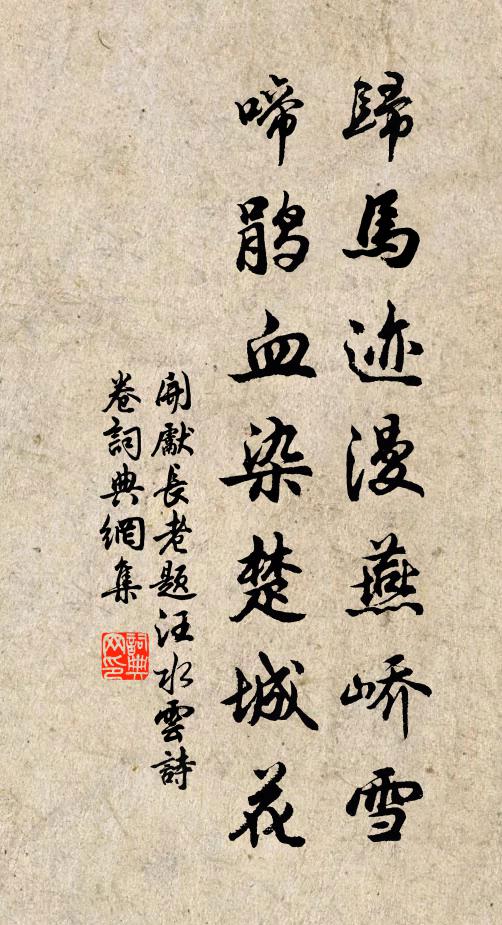 歸馬迹漫燕峤雪
啼鹃血染楚城花
開獻長老题汪水雲詩
卷詞典網集
詞典网印